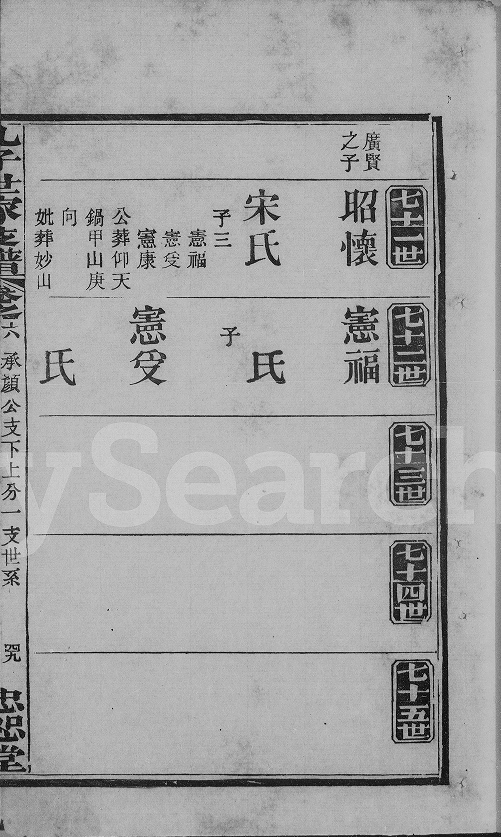 七十一世
廣賢
之子
昭懷
宋氏
子三
憲福
憲受
憲康
公葬仰天
鍋甲山庚
向
妣葬妙山
七十二世
憲福
氏
子
憲受
氏
七十三世
七十四世
七十五世
孔子世家支譜 卷之六 承顏公支下上分一支世系
忠恕堂
ySearch